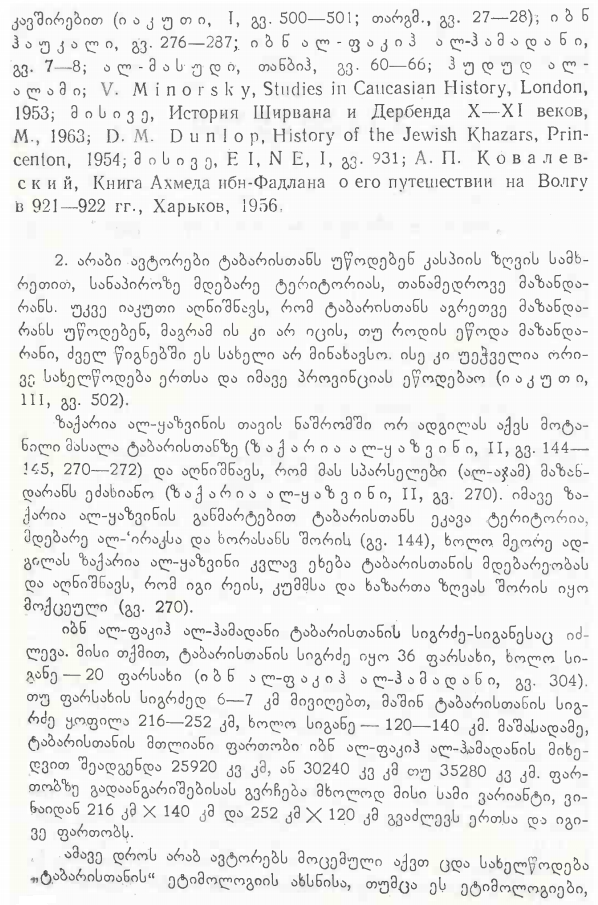 კავშირებით (იაკუთი, I, გვ. 500—501; თარგმ., გვ. 27—28); იბნ
ჰაუკალი, გვ. 276—287; იბნ ალ-ფაკიჰ ალ-ჰამადანი,
გვ. 7—8; ალ-მასუდი, თანბიჰ, გვ. 60—66; ჰუდუდ ალ-
ალამი; V. Minorsky, Studies in Caucasian History, London,
1953; მისივე, История Ширвана и Дербенда X—XI веков,
М., 1963; D. M. Dunlop, History of the Jewish Khazars, Prin-
centon, 1954; მისივე, EI, NE, I, გვ. 931; А. П. Ковалев-
ский, Книга Ахмеда ибн-Фадлана о его путешествии на Волгу
в 921—922 гг., Харьков, 1956.
2. არაბი ავტორები ტაბარისთანს უწოდებენ კასპიის ზღვის სამხ-
რეთით, სანაპიროზე მდებარე ტერიტორიას, თანამედროვე მაზანდა-
რანს. უკვე იაკუთი აღნიშნავს, რომ ტაბარისთანს აგრეთვე მაზანდა-
რანს უწოდებენ, მაგრამ ის კი არ იცის, თუ როდის ეწოდა მაზანდა-
რანი, ძველ წიგნებში ეს სახელი არ მინახავსო. ისე კი უეჭველია ორი-
ვე სახელწოდება ერთსა და იმავე პროვინციას ეწოდებაო (იაკუთი,
III, გვ. 502).
ზაქარია ალ-ყაზვინის თავის ნაშრომში ორ ადგილას აქვს მოტა-
ნილი მასალა ტაბარისთანზე (ზაქარია ალ-ყაზვინი, II, გვ. 144—
145, 270—272) და აღნიშნავს, რომ მას სპარსელები (ალ-აჯამ) მაზან-
დარანს ეძახიანო (ზაქარია ალ-ყაზვინი, II, გვ. 270). იმავე ზა-
ქარია ალ-ყაზვინის განმარტებით ტაბარისთანს ეკავა ტერიტორია,
მდებარე ალ-‘ირაკსა და ხორასანს შორის (გვ. 144), ხოლო მეორე ად-
გილას ზაქარია ალ-ყაზვინი კვლავ ეხება ტაბარისთანის მდებარეობას
და აღნიშნავს, რომ იგი რეის, კუმმსა და ხაზართა ზღვას შორის იყო
მოქცეული (გვ. 270).
იბნ ალ-ფაკიჰ ალ-ჰამადანი ტაბარისთანის სიგრძე-სიგანესაც იძ-
ლევა. მისი თქმით, ტაბარისთანის სიგრძე იყო 36 ფარსახი, ხოლო სი-
განე — 20 ფარსახი (იბნ ალ-ფაკიჰ ალ-ჰამადანი, გვ. 304).
თუ ფარსახის სიგრძედ 6—7 კმ მივიღებთ, მაშინ ტაბარისთანის სიგ-
რძე ყოფილა 216—252 კმ, ხოლო სიგანე — 120—140 კმ. მაშასადამე,
ტაბარისთანის მთლიანი ფართობი იბნ ალ-ფაკიჰ ალ-ჰამადანის მიხე-
დვით შეადგენდა 25920 კვ კმ, ან 30240 კვ კმ თუ 35280 კვ კმ. ფარ-
თობზე გადაანგარიშებისას გვრჩება მხოლოდ მისი სამი ვარიანტი, ვი-
ნაიდან 216 კმ × 140 კმ და 252 კმ × 120 კმ გვაძლევს ერთსა და იგი-
ვე ფართობს.
ამავე დროს არაბ ავტორებს მოცემული აქვთ ცდა სახელწოდება
„ტაბარისთანის“ ეტიმოლოგიის ახსნისა, თუმცა ეს ეტიმოლოგიები,